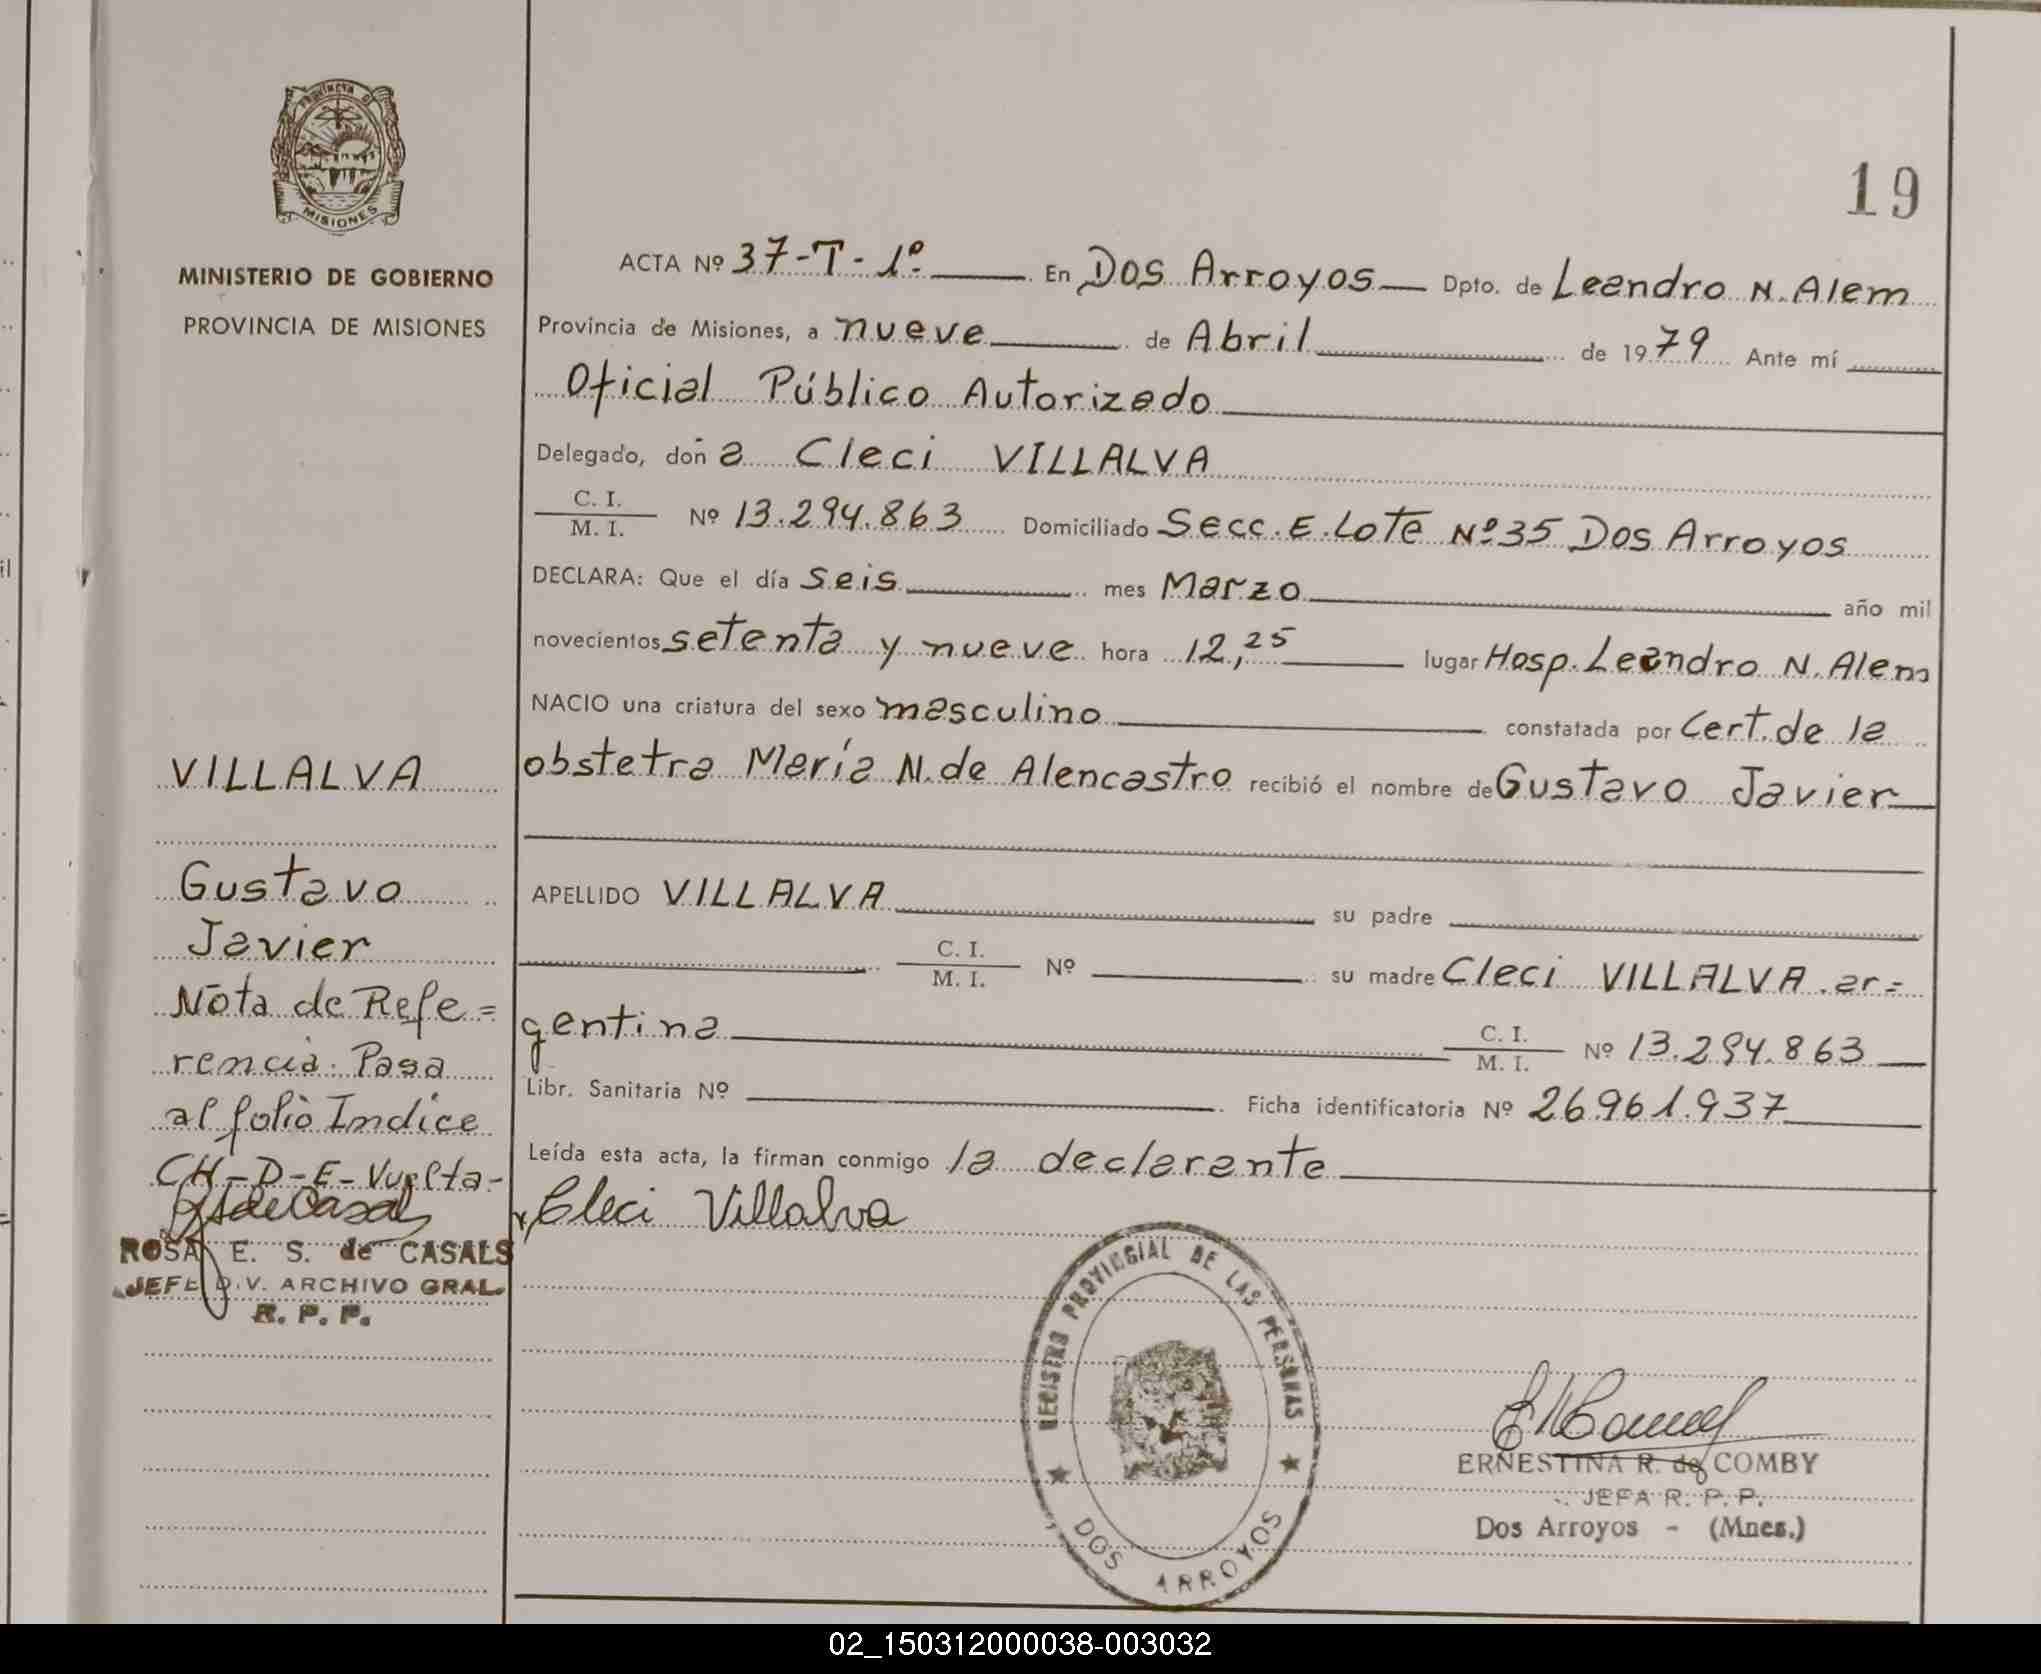 PROVINCIA DE
MISIONES
MINISTERIO DE GOBIERNO
PROVINCIA DE MISIONES
19
ACTA Nº 37-T-1º. En Dos Arroyos Dpto. de Leandro N. Alem
Provincia de Misiones, a nueve de Abril de 1979 Ante mí
Oficial Público Autorizado
Delegado, doña Cleci VILLALVA
C. I.
M. I. Nº 13.294.863 Domiciliado Secc. E. Lote Nº 35 Dos Arroyos
DECLARA: Que el día seis mes Marzo año mil
novecientos setenta y nueve hora 12,25 lugar Hosp. Leandro N. Alem
NACIO una criatura del sexo masculino constatada por Cert. de la
obstetra María N. de Alencastro recibió el nombre de Gustavo Javier
APELLIDO VILLALVA su padre
C. I.
M. I. Nº su madre Cleci VILLALVA. ar=
gentina C. I.
M. I. Nº 13.294.863
Libr. Sanitaria Nº Ficha identificatoria Nº 26.961.937
Leída esta acta, la firman conmigo la declarante
Cleci Villalva
VILLALVA
Gustavo
Javier
Nota de Refe=
rencia: Pasa
al folio Indice
CH-D-E-Vuelta-
ROSA E. S. de CASALS
JEFE DIV. ARCHIVO GRAL.
R. P. P.
REGISTRO PROVINCIAL DE LAS PERSONAS
DOS ARROYOS
ERNESTINA R. de COMBY
JEFA R. P. P.
Dos Arroyos - (Mnes.)
02_150312000038-003032